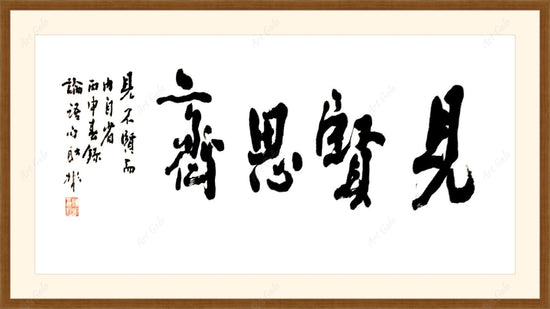 見賢思齊
見不賢而
內自省
丙申春錄
論語句
Art Gale